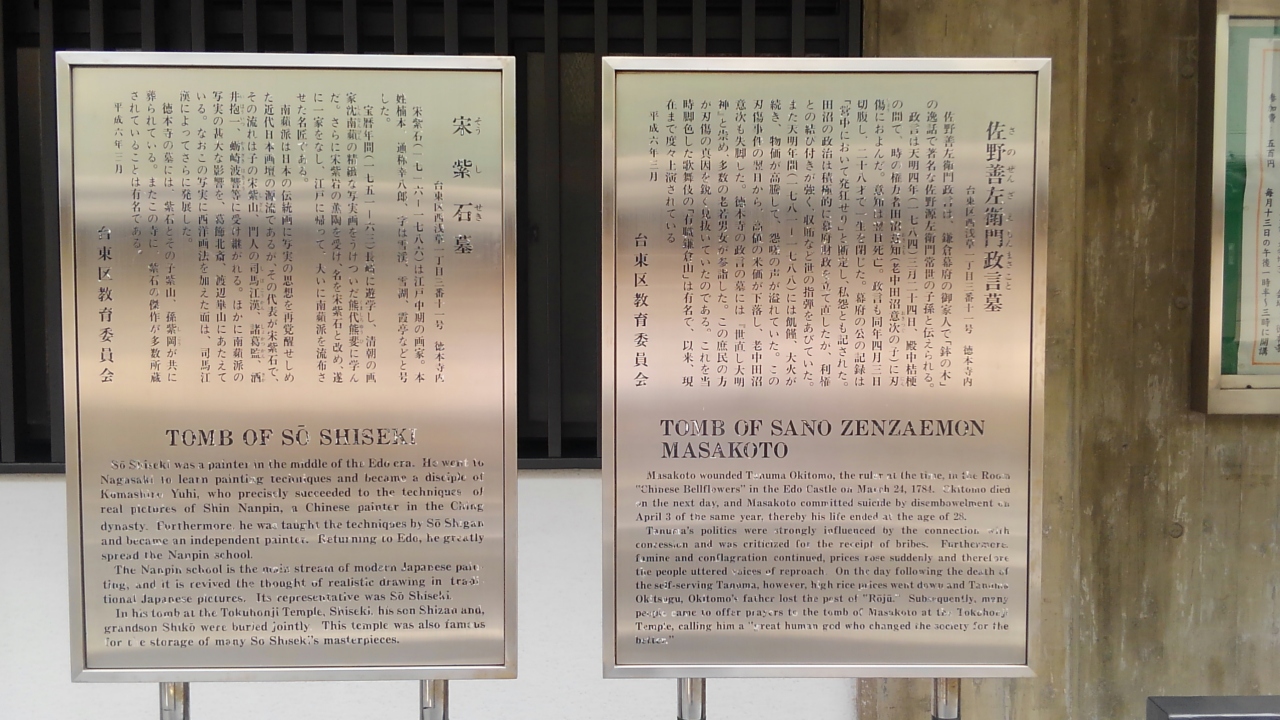 宋紫石墓
そうしせき
台東区西浅草一丁目三番十一号 徳本寺内
宋紫石(一七一六―一七八六)は江戸中期の画家。本
姓楠本、通称幸八郎、字は雪渓、雪湖、霞亭などと号
した。
宝暦年間(一七五一―六三)長崎に遊学し、清朝の画
家沈南蘋の精緻な写実画をうけついだ熊代熊斐に学ん
だ。さらに宋紫岩の薫陶を受け、名を宋紫石と改め、遂
に一家をなし、江戸に帰って、大いに南蘋派を流布さ
せた名匠である。
南蘋派は日本の伝統画に写実の思想を再覚醒せしめ
た近代日本画の本源流であるが、その代表が宋紫石で、
その流れは子の宋紫山、門人の司馬江漢、諸葛監、酒
井抱一、蠣崎波響等に受け継がれる。ほかに南蘋派の
写実の甚大な影響を、葛飾北斎、渡辺崋山にあたえて
いる。なおこの写実に西洋画法を加えた面は、司馬江
漢によってさらに発展した。
徳本寺の墓には、紫石とその子紫山、孫紫岡が共に
葬られている。またこの寺に、紫石の傑作が多数所蔵
されていることは有名である。
平成六年三月
台東区教育委員会
TOMB OF SŌ SHISEKI
Sō Shiseki was a painter in the middle of the Edo era. He went to
Nagasaki to learn painting techniques and became a disciple of
Kumashiro Yuhi, who precisely succeeded to the techniques of
real pictures of Shin Nanpin, a Chinese painter in the Ching
dynasty. Furthermore, he was taught the techniques by Sō Shigan
and became an independent painter. Returning to Edo, he greatly
spread the Nanpin school.
The Nanpin school is the main stream of modern Japanese pain-
ting, and it is revived the thought of realistic drawing in tradi-
tional Japanese pictures. Its representative was Sō Shiseki.
In his tomb at the Tokuhonji Temple, Shiseki, his son Shizan and,
grandson Shikō were buried jointly. This temple was also famous
for the storage of many So Shiseki's masterpieces.
佐野善左衛門政言墓
さのぜんざえもんまさこと
台東区西浅草一丁目三番十一号 徳本寺内
佐野善左衛門政言は、鎌倉幕府の御家人で「鉢の木」
の逸話で著名な佐野源左衛門常世の子孫と伝えられる。
政言は天明四年(一七八四)三月二十四日、殿中桔梗
の間で、時の権力者田沼意知(老中田沼意次の子)に刃
傷におよんだ。意知は翌日死亡。政言も同年四月三日
切腹し、二十八才で一生を閉じた。幕府の公の記録は
「営中において発狂せり」と断定し、私怨とも記された。
田沼の政治は積極的に幕府財政を立て直したが、利権
との結び付きが強く、収賄など世の指弾をあびていた。
また天明年間(一七八一―一七八八)には飢饉、大火が
続き、物価が高騰して、怨嗟の声が溢れていた。この
刃傷事件の翌日から、高値の米価が下落し、老中田沼
意次も失脚した。徳本寺の政言の墓には『世直し大明
神』と崇め、多数の老若男女が参詣した。この庶民の方
が刃傷の真因を鋭く見抜いていたのである。これを当
時脚色した歌舞伎の『有職鎌倉山』は有名で、以来、現
在まで度々上演されている。
平成六年三月
台東区教育委員会
TOMB OF SANO ZENZAEMON
MASAKOTO
Masakoto wounded Tanuma Okitomo, the ruler at the time, in the Room
"Chinese Bellflowers" in the Edo Castle on March 24, 1784. Okitomo died
on the next day, and Masakoto committed suicide by disembowelment on
April 3 of the same year, thereby his life ended at the age of 28.
Tanuma's politics were strongly influenced by the connection with
concession and was criticized for the receipt of bribes. Furthermore,
famine and conflagration continued, prices rose suddenly and therefore
the people uttered voices of reproach. On the day following the death of
the self-serving Tanuma, however, high rice prices went down and Tanuma
Okitsugu, Okitomo's father lost the post of "Rōjū." Subsequently, many
people came to offer prayers to the tomb of Masakoto at the Tokuhonji
Temple, calling him a "great human god who changed the society for the
better."
毎月十三日の午後一時半～三時に開講
参加費 五百円